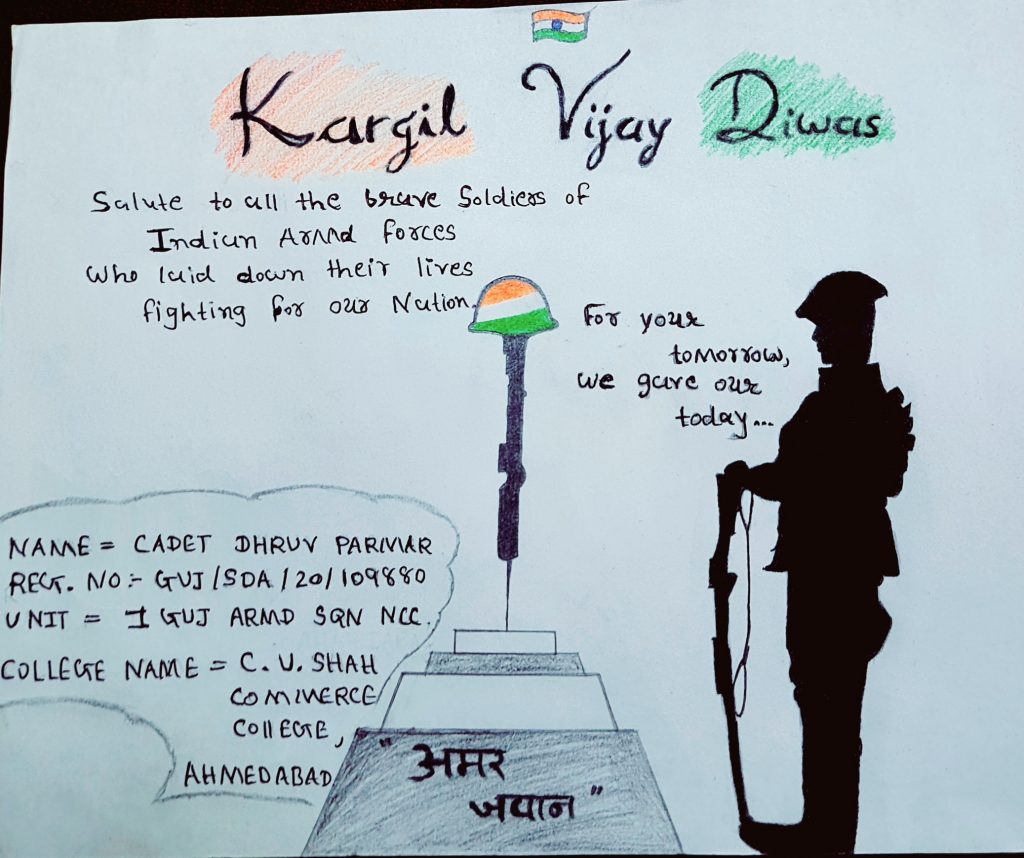 Kargil Vijay Diwas
Salute to all the brave Soldiers of
Indian Armd forces
Who laid down their lives
fighting for our Nation.
For your
tomorrow,
we gave our
today...
NAME = CADET DHRUV PARMAR
REGT. NO:- GUJ/SDA/20/109880
UNIT = 1 GUJ ARMD SQN NCC.
COLLEGE NAME = C. U. SHAH
COMMERCE
COllEGE,
AHMEDABAD
"अमर
जवान"